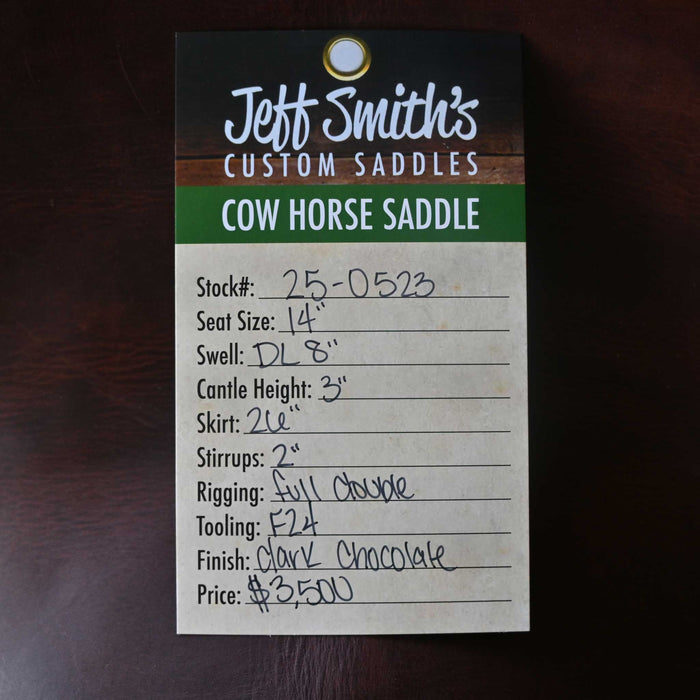 Jeff Smith's
CUSTOM SADDLES
COW HORSE SADDLE
Stock#: 25-0523
Seat Size: 14"
Swell: DL 8"
Cantle Height: 3"
Skirt: 26"
Stirrups: 2"
Rigging: full double
Tooling: F24
Finish: dark chocolate
Price: $3,500